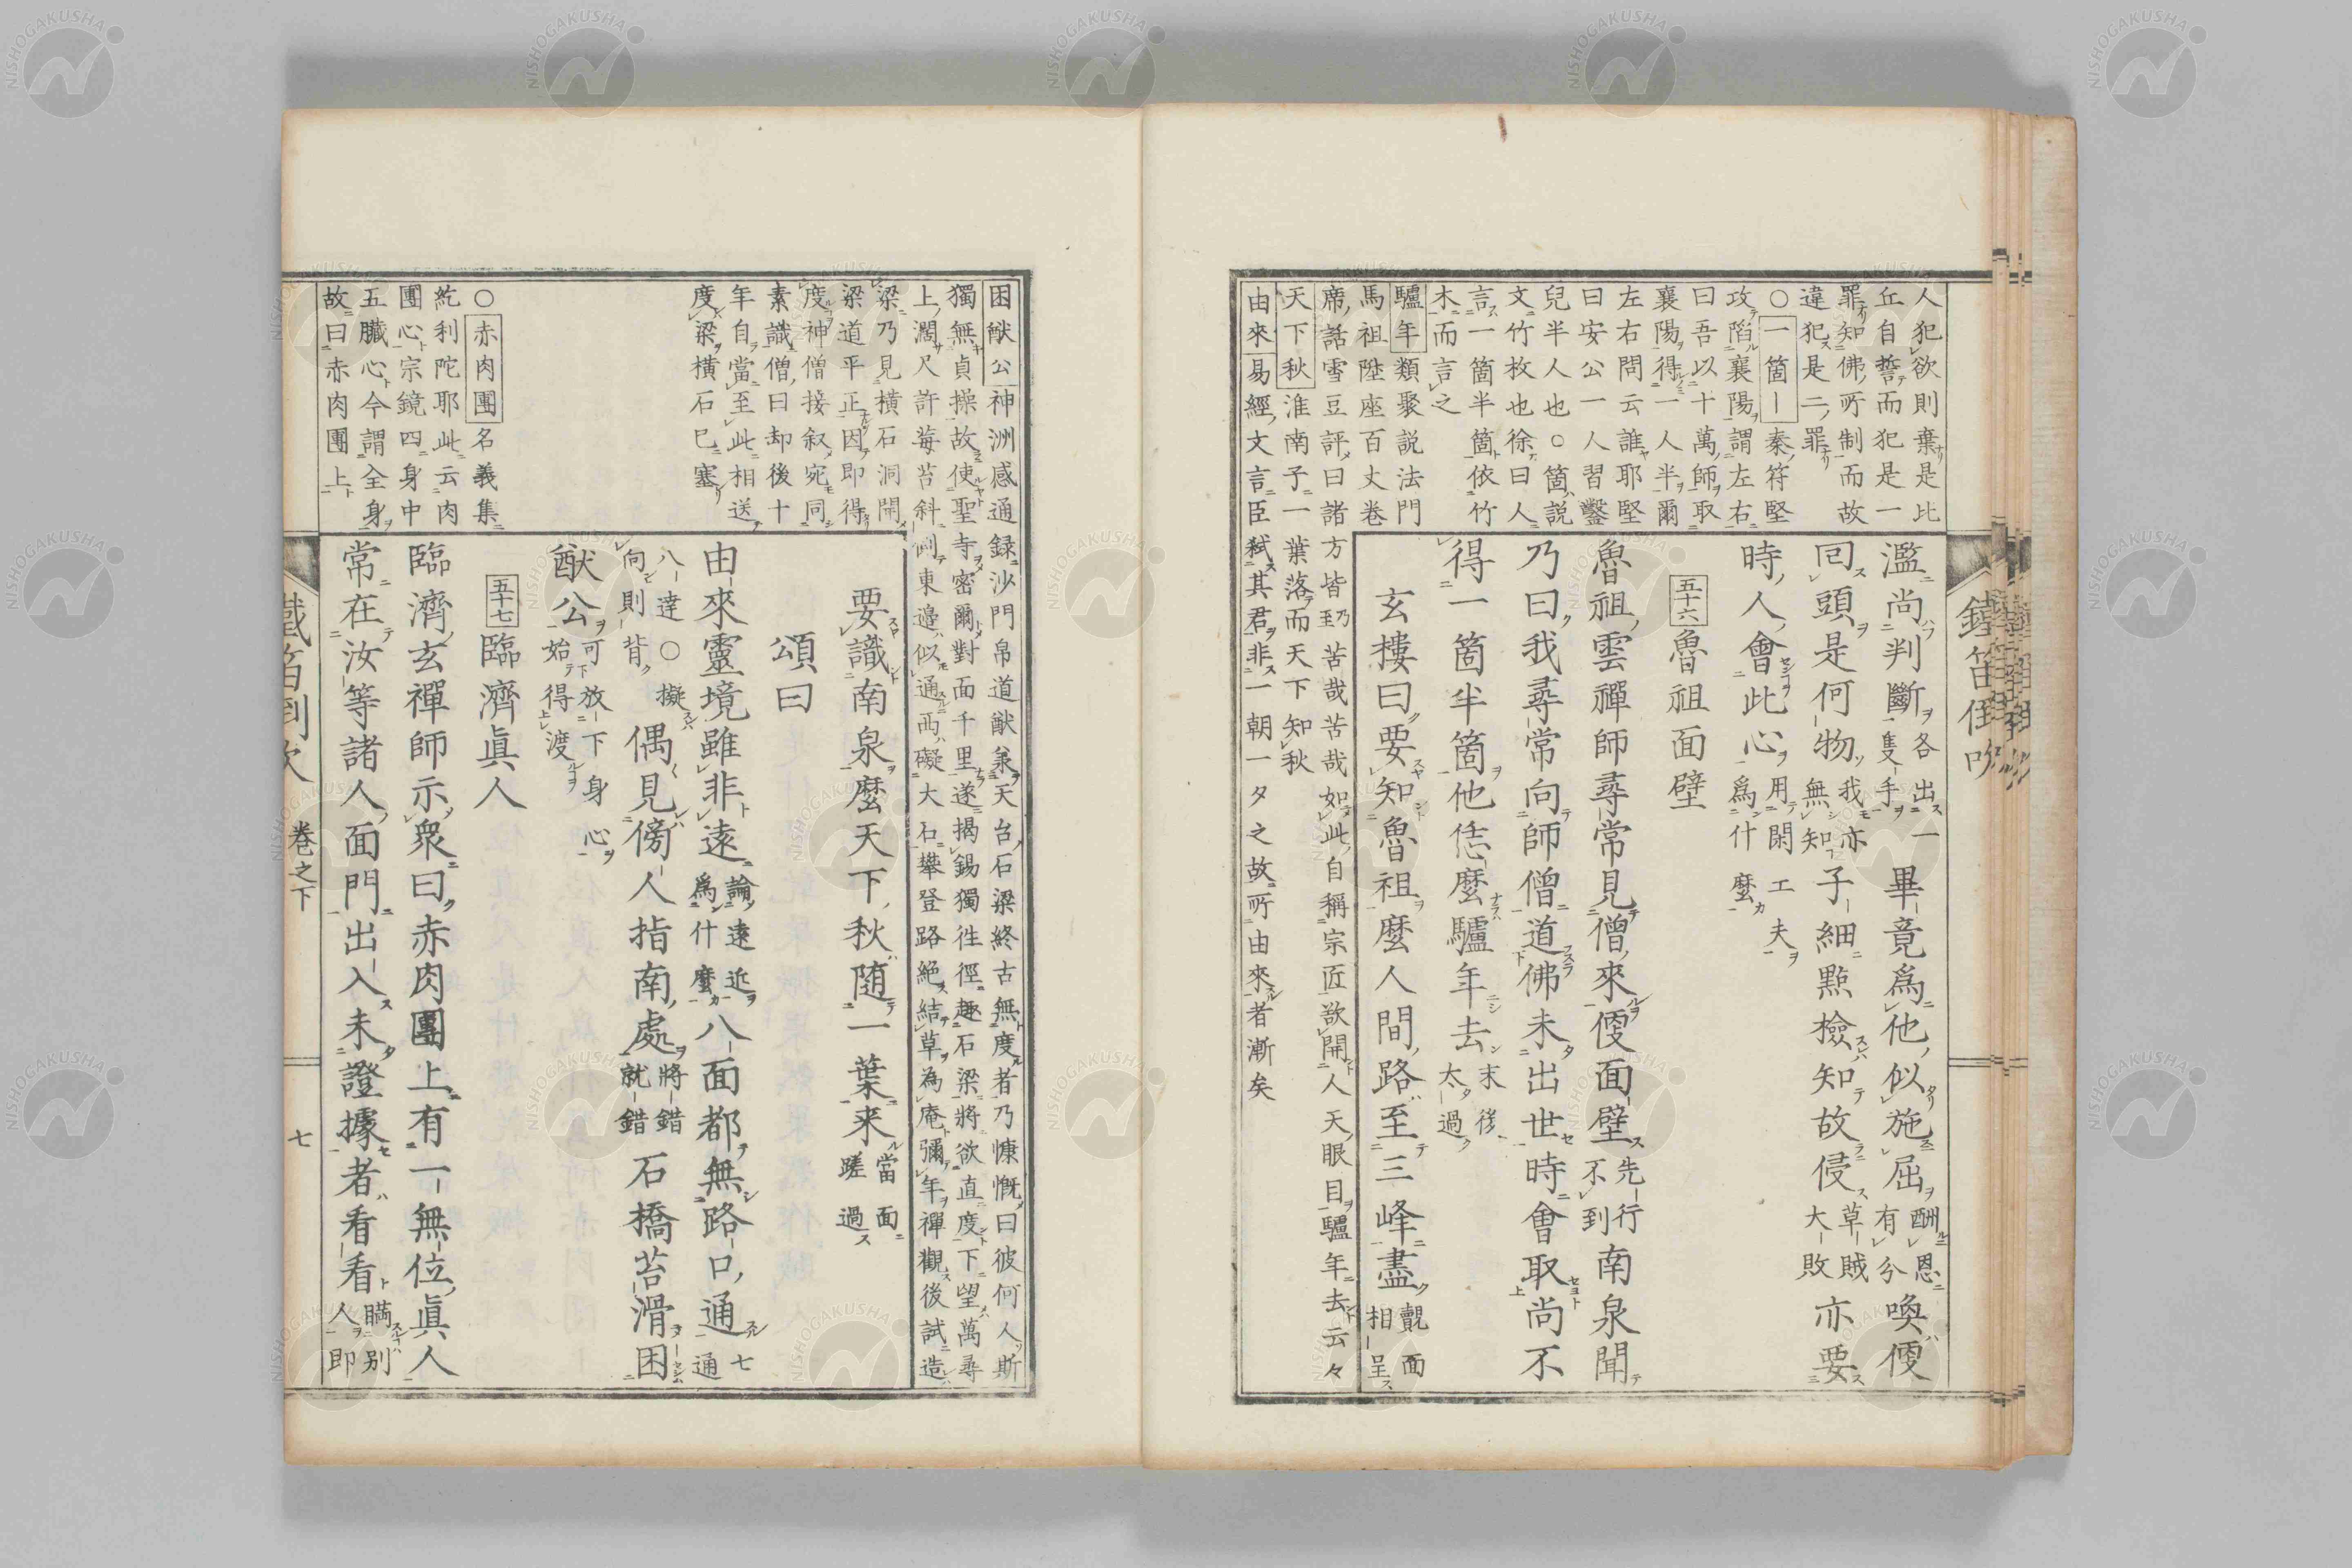 人犯欲則棄是比
丘自誓而犯是一
罪知佛所制而故
違犯是二罪
○一箇｜秦符堅
攻陷襄陽謂左右
曰吾以十萬師取
襄陽得一人半爾
左右問云誰耶堅
曰安公一人習鑿
兒半人也○箇説
文竹枚也徐曰人
言一箇半箇依竹
木而言之
驢年類聚説法門
馬祖陞座百丈卷
席話雪豆評曰諸方皆至乃苦哉苦哉如此自稱宗匠欲開人天眼目驢年去云々
天下秋淮南子一葉落而天下知秋
由來易經文言臣弑其君非一朝一夕之故所由來者漸矣
濫尚判斷各出一隻手畢竟爲他似施屈酬恩有分喚便
囘頭是何物我亦無知子細點檢知故侵草賊大敗亦要
時人會此心用閑工夫爲什麼
五十六魯祖面壁
魯祖雲禪師尋常見僧來便面壁先行不到南泉聞
乃曰我尋常向師僧道佛未出世時會取尚不
得一箇半箇他恁麼驢年去末後太過
玄樓曰要知魯祖麼人間路至三峰盡覿面相呈
鐵笛倒吹
困猷公神洲感通録沙門帛道猷 天台石梁終古無度者乃慷慨曰彼何人斯
獨無貞操故使聖寺密爾對面千里遂揭錫獨往徑趣石梁將欲直度下望萬尋
上濶尺許莓苔斜側東邊似通西礙大石攀登路絶結草為庵彌年禪觀後試造
梁乃見橫石洞開
梁道平正因即得
度神僧接叙宛同
素識僧曰却後十
年自當至此相送
度梁橫石已塞
○赤肉團名義集
紇利陀耶此云肉
團心宗鏡四身中
五臟心今謂全身
故曰赤肉團上
要識南泉麼天下秋隨一葉来當面蹉過
頌曰
由來靈境雖非遠論遠近爲什麼八面都無路口通七通
八達○擬向則背偶見傍人指南處將錯就錯石橋苔滑困
猷公可放下身心始得渡
五十七臨濟眞人
臨濟玄禪師示衆曰赤肉團上有一無位眞人
常在汝等諸人面門出入未證據者看看瞞別人即
鐵笛倒吹 卷之下 七